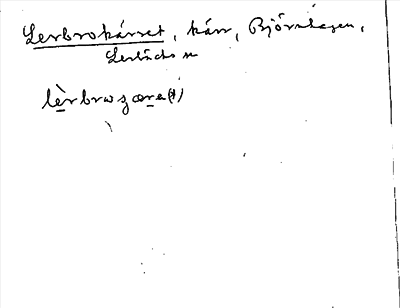 Lerbrokärret, kärr, Björnhagen,
Lerbäcks sn
lèrbroʒære(t)